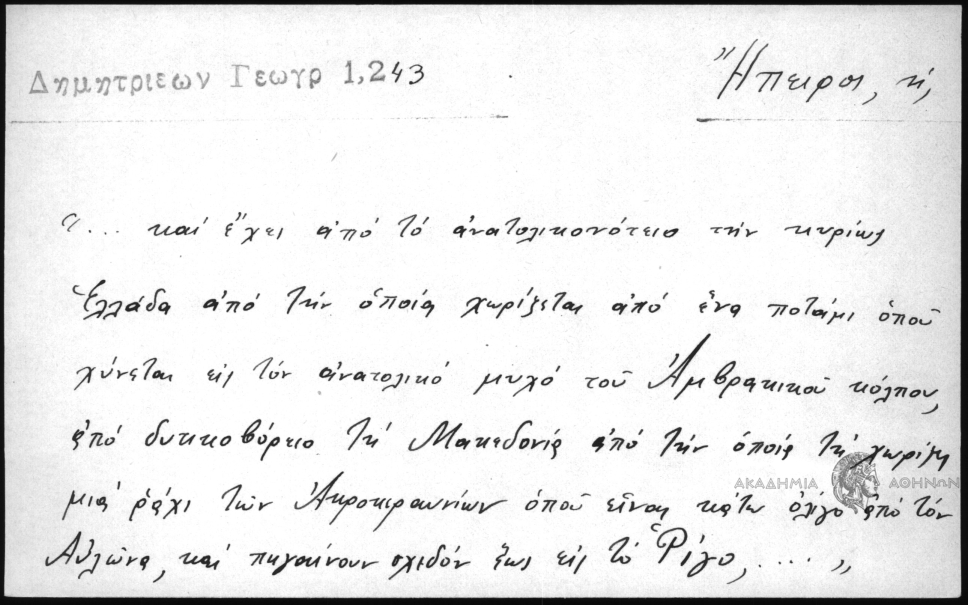 Δημητριεων Γεωγρ 1,243
Ἤπειρος, ἡ,
"... καί ἔχει ἀπό τό ἀνατολικονότειο τήν κυρίως
Ἑλλάδα ἀπό τήν ὁποία χωρίζεται ἀπό ἕνα ποτάμι ὁποῦ
χύνεται εἰς τόν ἀνατολικό μυχό τοῦ Ἀμβρακικοῦ κόλπου,
ἀπό δυτικοβόρειο τή Μακεδονία ἀπό τήν ὁποία τή χωρίζει
μιά ράχι τῶν Ἀκροκεραυνίων ὁποῦ εἶναι κάτω ὀλίγο ἀπό τόν
Αὐλῶνα, καί πηγαίνουν σχεδόν ἕως εἰς τό Ρίγο, ...."
ΑΚΑΔΗΜΙΑ ΑΘΗΝΩΝ